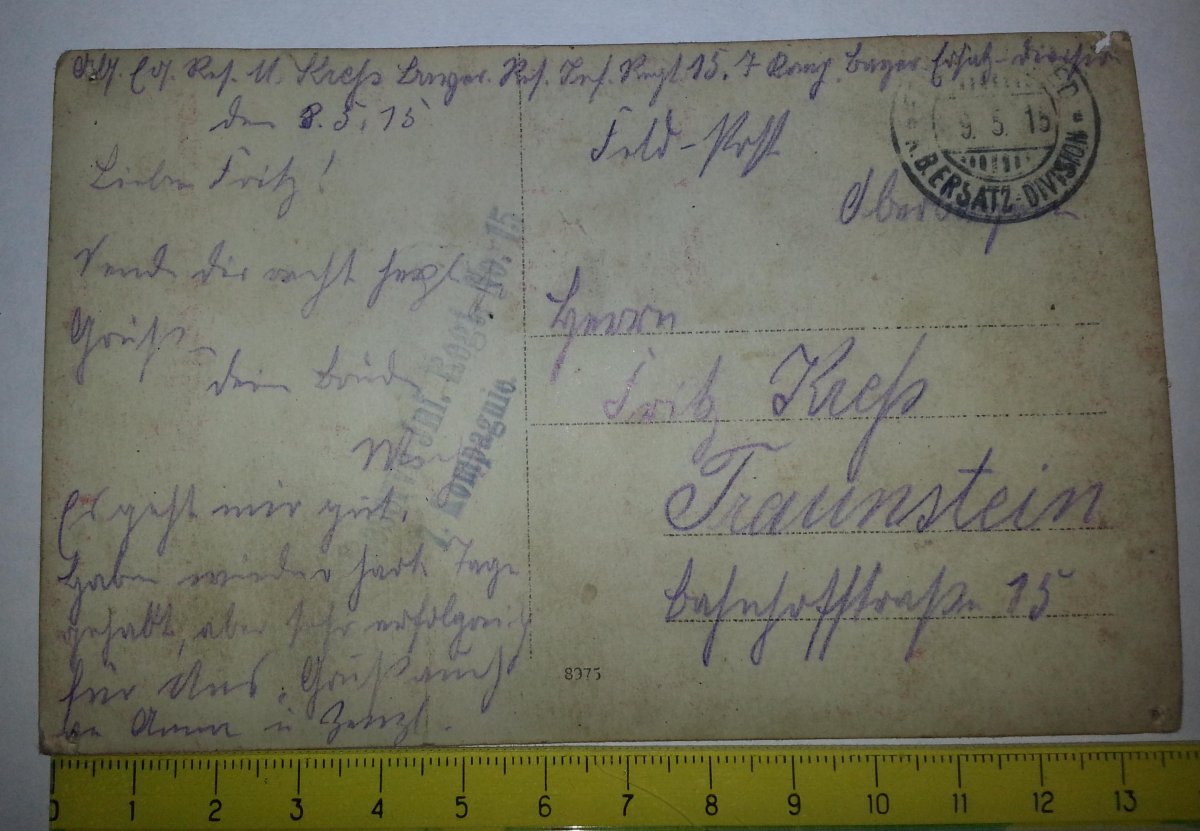 Ers. Res. M. Kreß Bayer. Res. Inf. Regt. 15. 7 Komp. Bayer Ersatz-Division
den 8.5.15
Lieber Fritz!
Sende dir recht herzl.
Grüße
dein Bruder
Es geht mir gut.
Haben wieder harte Tage
gehabt, aber sehr erfolgreich
für Uns. Grüße auch
an Anna u Zenzl.
Inf. Regt. No. 15
7. Kompagnie.
Feld-Post
9.5.15
B.ERSATZ-DIVISION
Oberbayern
Herrn
Fritz Kreß
Traunstein
Bahnhofstraße 15
8975
0 1 2 3 4 5 6 7 8 9 10 11 12 13